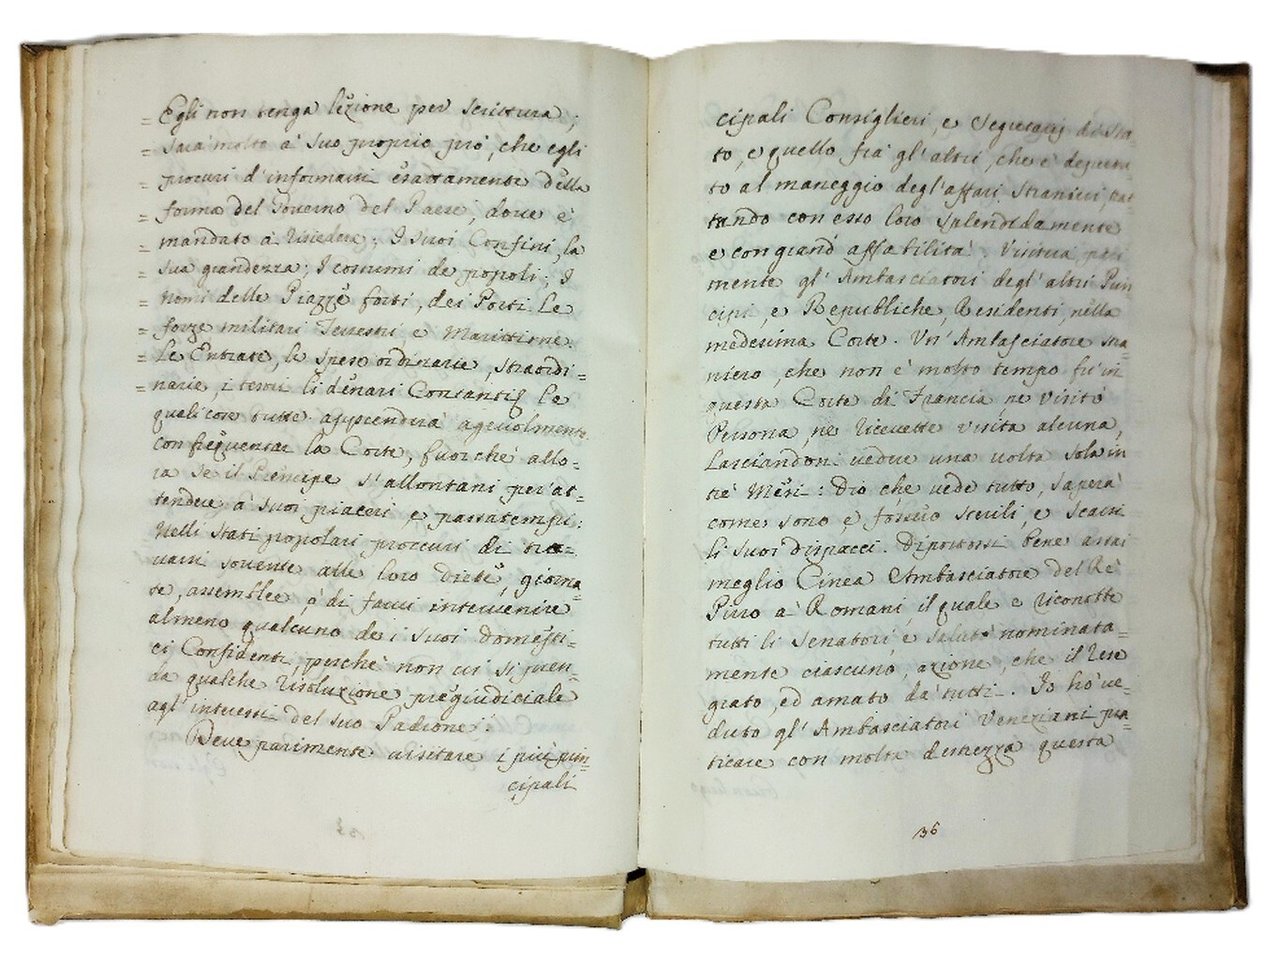 = Egli non tenga lezione per scrittura;
= sarà molto à suo proprio prò, che egli
= procuri d'informarsi esattamente della
= forma del Governo del Paese, dove è
= mandato à risiedere; I suoi Confini, la
= sua grandezza; I costumi de popoli; I
= nomi delle Piazze forti, dei Porti Le
= forze militari Terrestri e Marittime.
= Le Entrate, le spese ordinarie, straordi=
= narie, i tesori li denari Contanti; Le
quali cose tutte apprenderà agevolmente
con frequentar la Corte, fuorche allo=
ra se il Prencipe s'allontani per at=
tendere à suoi piaceri e passatempi:
Nelli stati popolari procuri di tro=
varsi sovente alle loro diete, giorna=
te, assemblee, ò di farci intervenire
almeno qualcuno dei suoi domesti=
ci Confidenti, perche non vi si pren=
da qualche risoluzione pregiudiciale
agl'interessi del suo Padrone.
Deve parimente visitare i più prin=
cipali
cipali Consiglieri, e Segretarij di Sta=
to, e quello frà gl'altri, che è deputa=
to al maneggio degl'affari stranieri, trat=
tando con esso loro splendidamente
e con grand'affabilità. Visiterà pari
mente gl'Ambasciatori degl'altri Prin
cipi, e Republiche, Residenti, nella
medesima Corte. Un'Ambasciatore stra=
niero, che non è molto tempo fù in
questa Corte di Francia, ne visitò
Persona, ne ricevette visita alcuna,
Lasciandosi vedere una volta sola in
trè Mesi: Dio che vede tutto, saperà
come sono e fossero sterili, e scarsi
li suoi dispacci. Diportossi bene assai
meglio Cinea Ambasciatore del Rè
Pirro a Romani, il quale e riconobbe
tutti li Senatori e salutò nominata=
mente ciascuno, azione, che il rese
grato ed amato da tutti. Io hò ve=
duto gl'Ambasciatori Veneziani pra=
ticare con molta destrezza questa
36